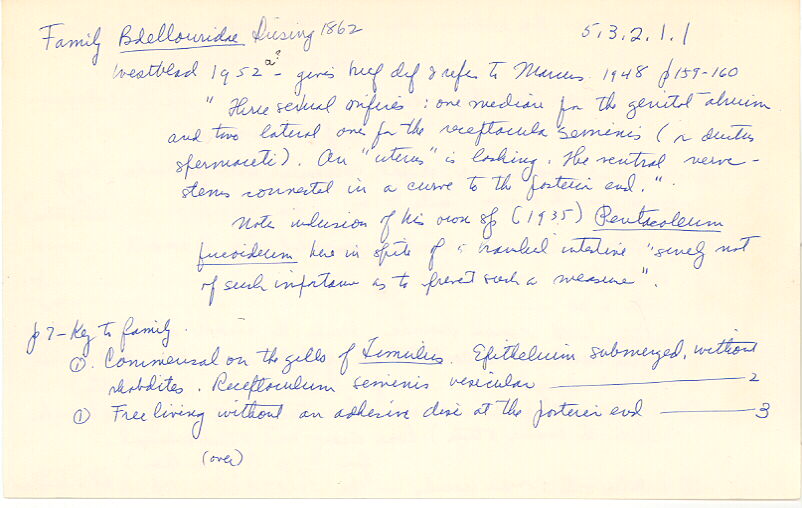 Family Bdellouridae Diesing 1862 5.3.2.1.1
Westblad 1952 a? - gives brief def & refers to Marcus 1948 p159-160
" Three sexual orifices : one median for the genital atrium
and two lateral ones for the receptacula seminis (or ductus
spermaceti). An "uterus" is lacking. The ventral nerve-
stems connected in a curve to the posterior end."
Note inclusion of his own sp (1935) Pentacoelum
fucoideum here in spite of branched intestine "surely not
of such importance as to prevent such a measure".
p 7 - Key to family.
①. Commensal on the gills of Limulus. Epithelium submerged, without
rhabdites. Receptaculum seminis vesicular 2
① Free living without an adhesive disc at the posterior end 3
(over)